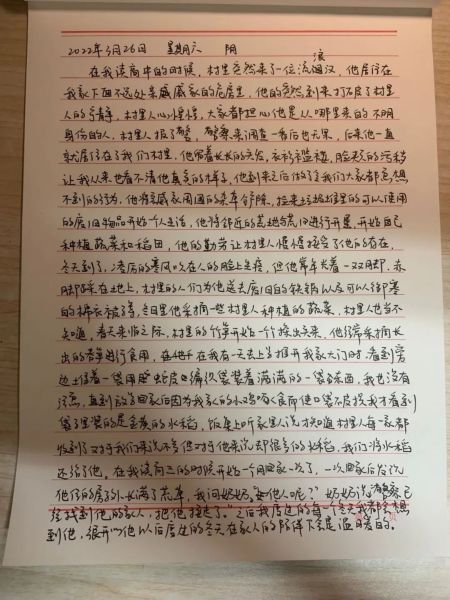 2022年3月26日 星期六 阴
在我读高中的时候,村里突然来了一位流浪汉,他居住在
我家下面不远处亲戚家的危房里,他的突然到来打破了村里
人的宁静,村里人心惶惶,大家都担心他是从哪里来的不明
身份的人,村里人报了警,警察来调查一番后也无果,后来他一直
就居住在了我们村里,他带着长长的头发,衣衫褴褛,脸上的污秽
让我从来也看不清他真实的样子,他到来之后做了让我们大家都意想
不到的行为,他将亲戚家周围的杂草铲除,捡来垃圾堆里的可以使用
的废旧物品开始一个人生活,他将邻近的荒地与荒田进行开垦,开始自己
种植蔬菜和稻田,他的勤劳让村里人慢慢接受了他的存在,
冬天到了,凛厉的寒风吹在人的脸上生疼,但他常年光着一双脚,赤
脚踩在地上,村里的人们为他送去废旧的铁锅以及可以御寒
的棉衣被等,冬日里他采摘一些村里人种植的蔬菜,村里人也当不
知道,春天来临之际,村里的竹笋开始一个个探出头来,他经常采摘长
出的春笋进行食用,在我有一天去上学推开我家大门时,看到旁
边立着一袋用蛇皮编织袋装着满满的一袋东西,我也没有
注意,直到放学回家后因为我家的小鸡啄食而使口袋不尽我才看到
袋里装的是金黄的水稻,饭桌上听家里人说才知道村里人每一家都
收到了对于我们来说不多但对于他来说却很多的水稻,我们将水稻
还给了他。在我读高三的时候开始一个月回家一次了,一次回家后发现
他住的房子外长满了荒草,我问奶奶:“他人呢?”奶奶说“警察已
经找到他的家人,把他接走了。”之后我度过的每一个冬天我都会想
到他,很开心他以后度过的冬天在家人的陪伴下会是温暖的。